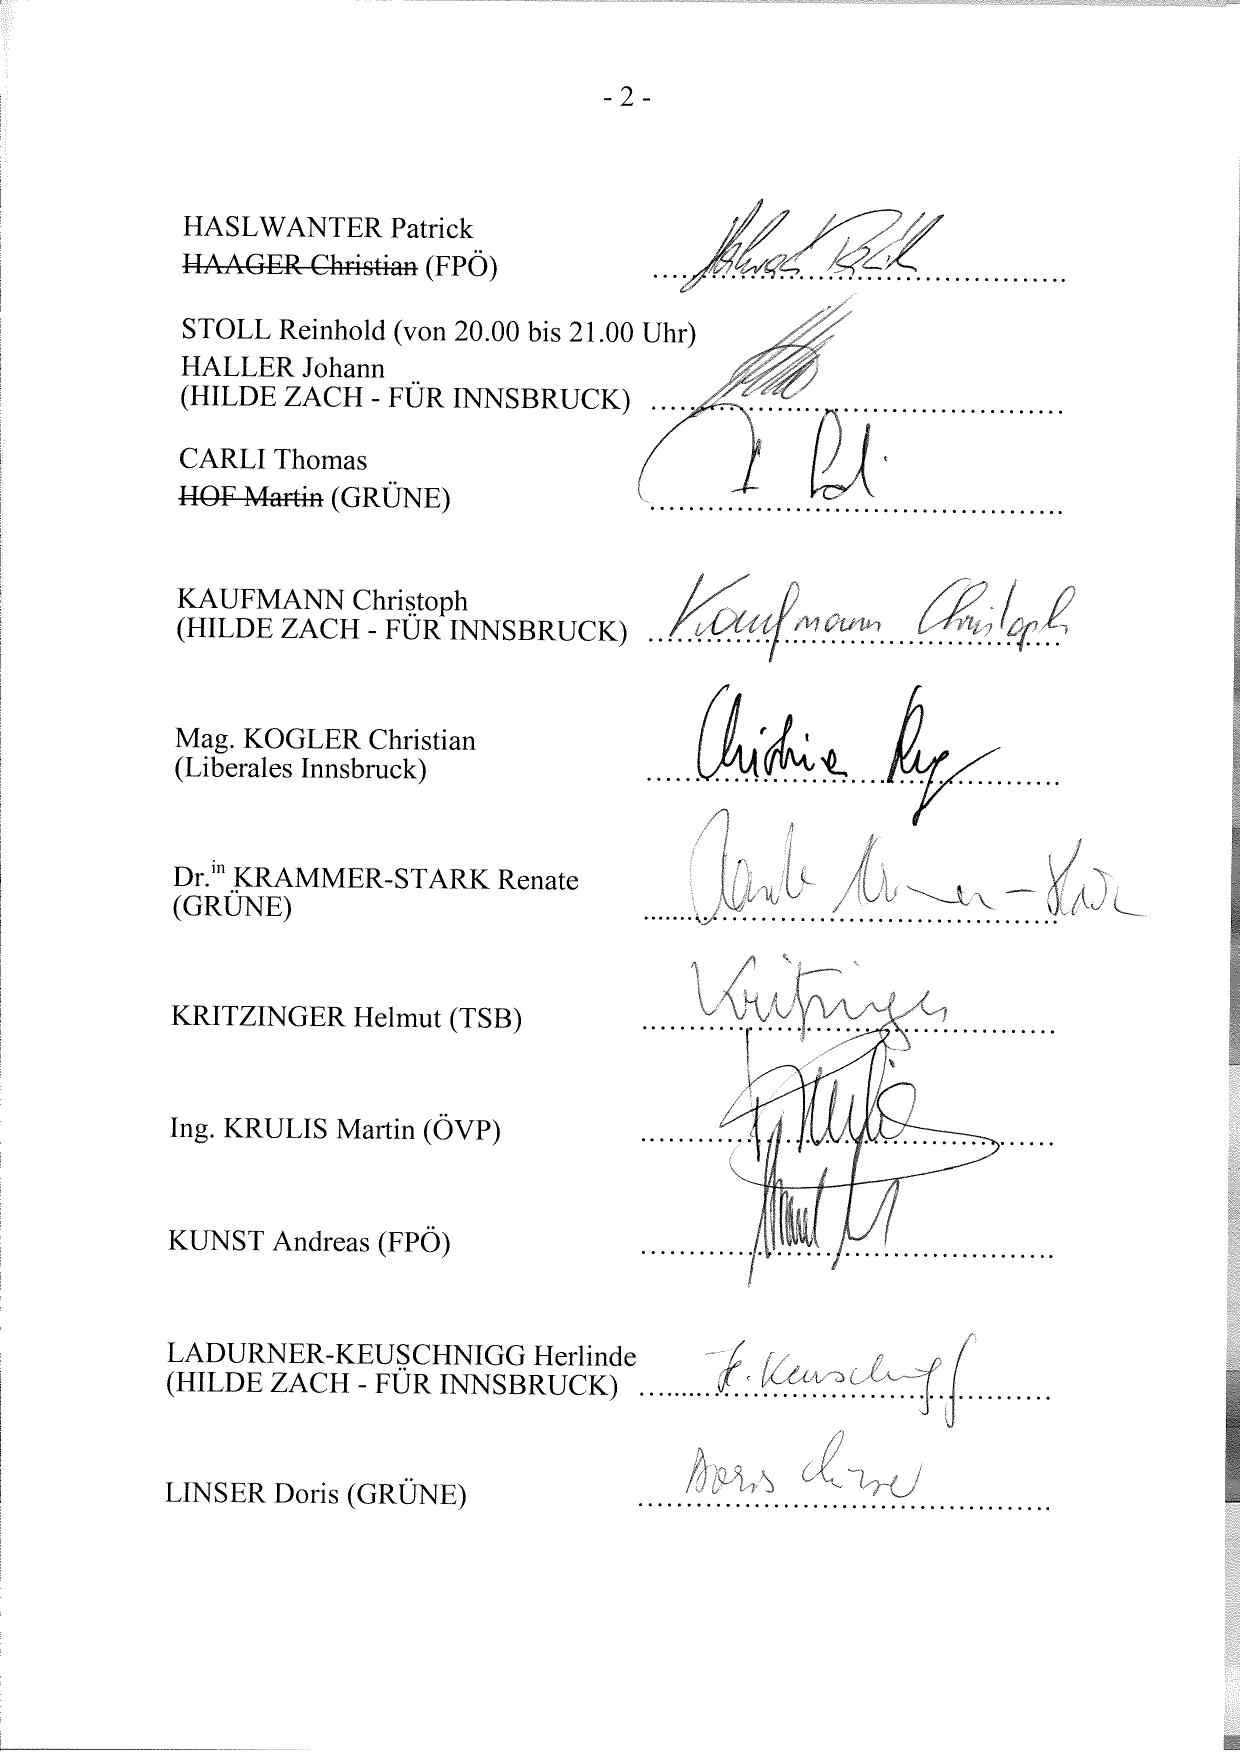 - 2 -
HASLWANTER Patrick
HAAGER Christian (FPÖ)
STOLL Reinhold (von 20.00 bis 21.00 Uhr)
HALLER Johann
(HILDE ZACH - FÜR INNSBRUCK)
CARLI Thomas
HOF Martin (GRÜNE)
KAUFMANN Christoph
(HILDE ZACH - FÜR INNSBRUCK) Kaufmann Christoph
Mag. KOGLER Christian
(Liberales Innsbruck)
Dr.in KRAMMER-STARK Renate
(GRÜNE)
KRITZINGER Helmut (TSB) Kritzinger
Ing. KRULIS Martin (ÖVP)
KUNST Andreas (FPÖ)
LADURNER-KEUSCHNIGG Herlinde
(HILDE ZACH - FÜR INNSBRUCK)
LINSER Doris (GRÜNE) Doris